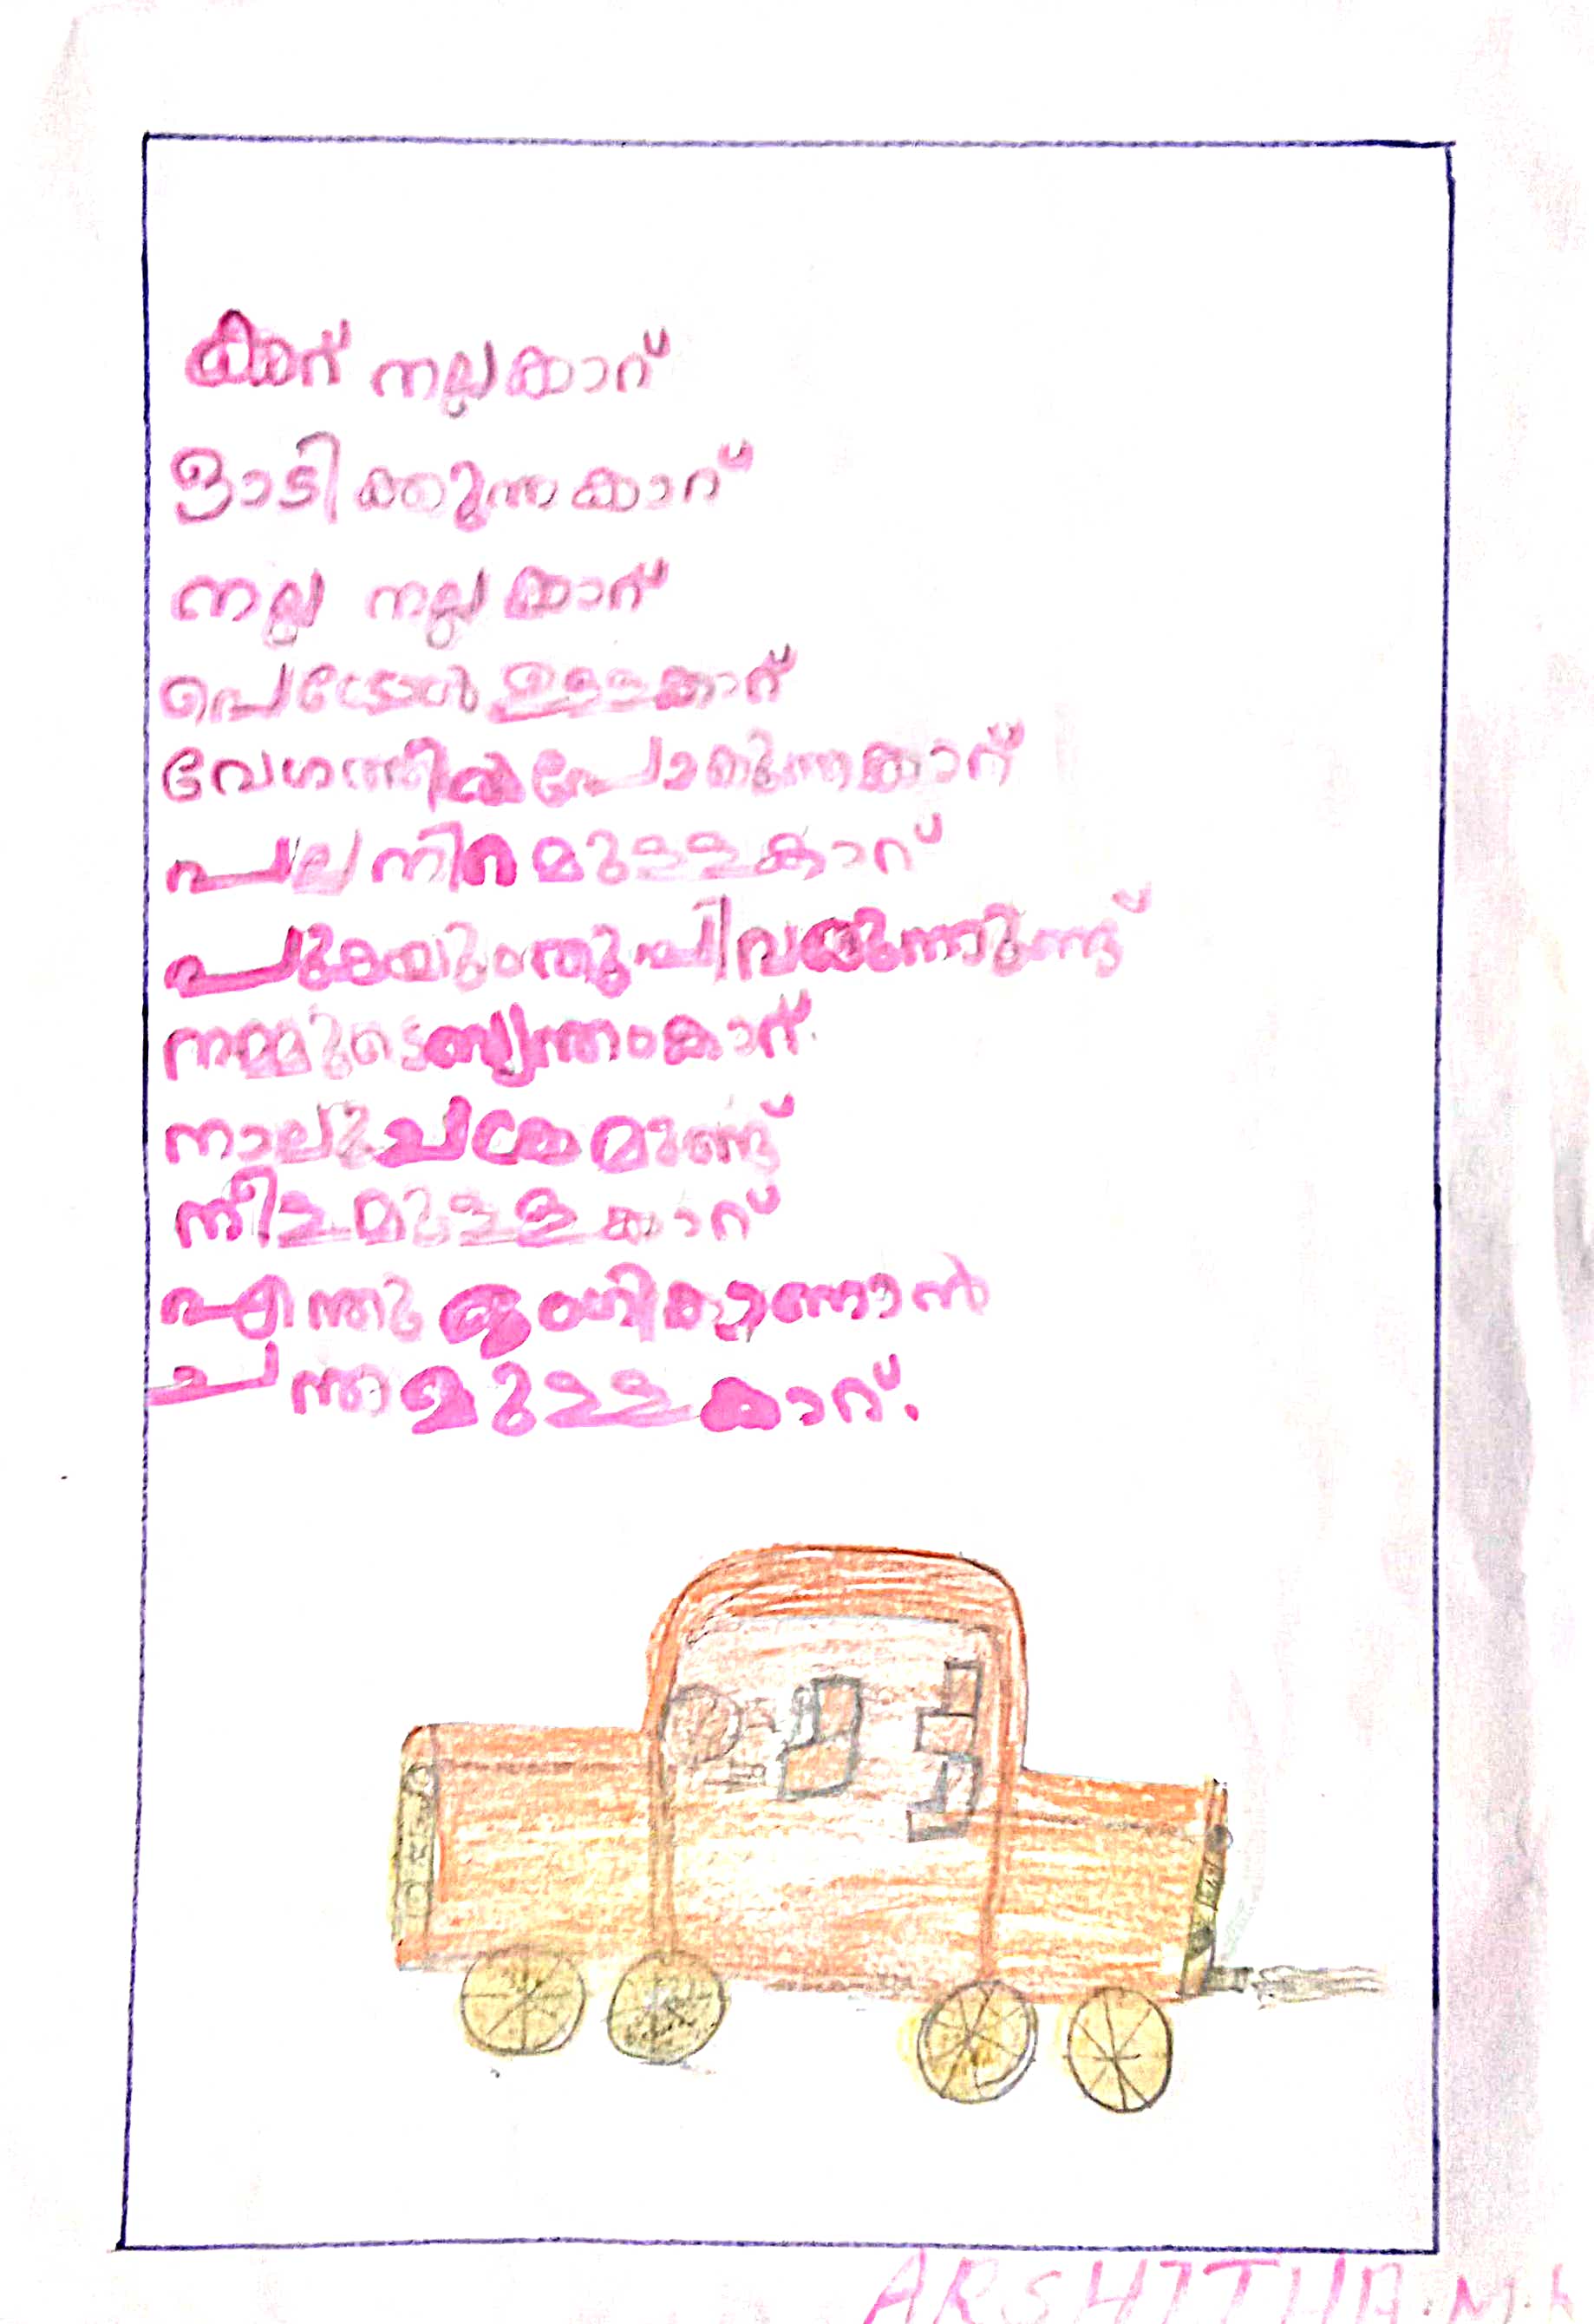 കാറ് നല്ലകാറ്
ഓടിക്കുന്നകാറ്
നല്ല നല്ലകാറ്
പെട്രോൾ ഉള്ളകാറ്
വേഗത്തിൽപോകുന്നകാറ്
പല നിറമുള്ളകാറ്
പുകയുംതുപ്പിവരുന്നുണ്ട്
നമ്മുടെസ്വന്തംകാറ്
നാലുചക്രമുണ്ട്
നീളമുള്ളകാറ്
എന്തു ഭംഗികാണാൻ
ചന്തമുള്ളകാറ്.
ARSHITHA.M.K